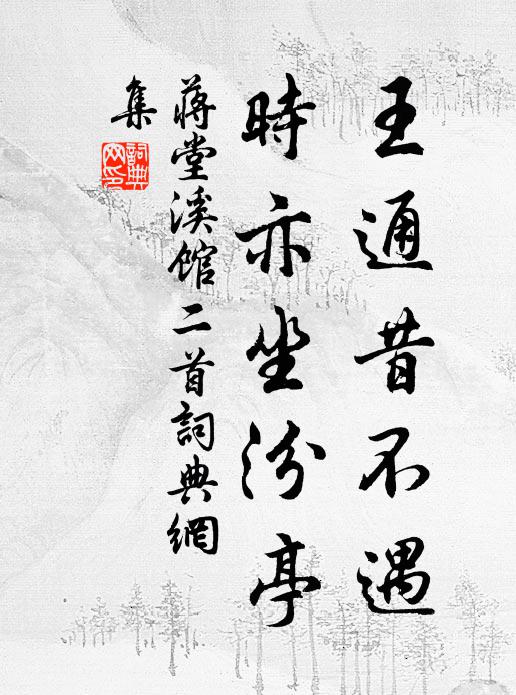 王通昔不遇
時亦坐汾亭
蔣堂溪館二首詞典網
集
詞典
网印